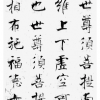 也世尊須菩提
維上下虛空
也世尊須菩提
相布施福德